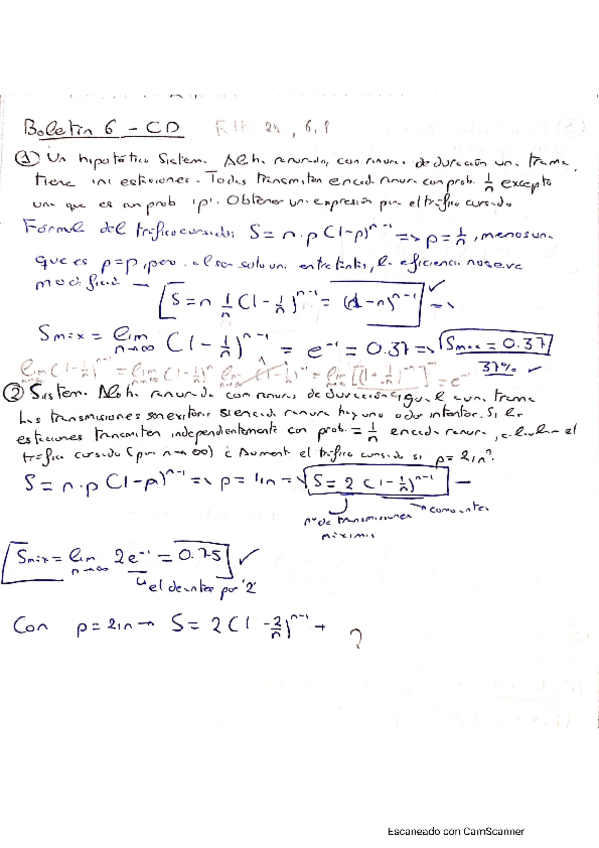 Boletín 6 - CD
① Un hipotético sistema Aloha ranurado, con ranuras de duración una trama,
tiene ini estaciones. Todas transmiten en cada ranura con prob. 1/n excepto
una que es con prob 'p'. Obtener una expresión para el tráfico cursado
Fórmula del tráfico cursado: S = n·p (1-p)ⁿ⁻¹ => p = 1/n, menos una
que es p=p, pero al ser solo una entre tantas, la eficiencia no se ve
modificada → [S = n 1/n (1 - 1/n)ⁿ⁻¹ = (1-n)ⁿ⁻¹]
Smáx = lim n→∞ (1 - 1/n)ⁿ⁻¹ = e⁻¹ = 0.37 => Smax = 0.37
37% ✓
② Sistema Aloha ranurado con ranuras de duración igual a una trama
Las transmisiones son exitosas si en cada ranura hay uno o dos intentos. Si las
estaciones transmiten independientemente con prob. = 1/n en cada ranura, calcula el
tráfico cursado (para n→∞) ¿Aumenta el tráfico cursado si p = 2/n?
S = n·p (1-p)ⁿ⁻¹ => p = 1/n => S = 2 (1 - 1/n)ⁿ⁻¹ —
nº de transmisiones
como antes
máximas
Smáx = lim n→∞ 2e⁻¹ = 0.75 ✓
el de antes por '2'
Con p = 2/n → S = 2 (1 - 2/n)ⁿ⁻¹ → ?
Escaneado con CamScanner